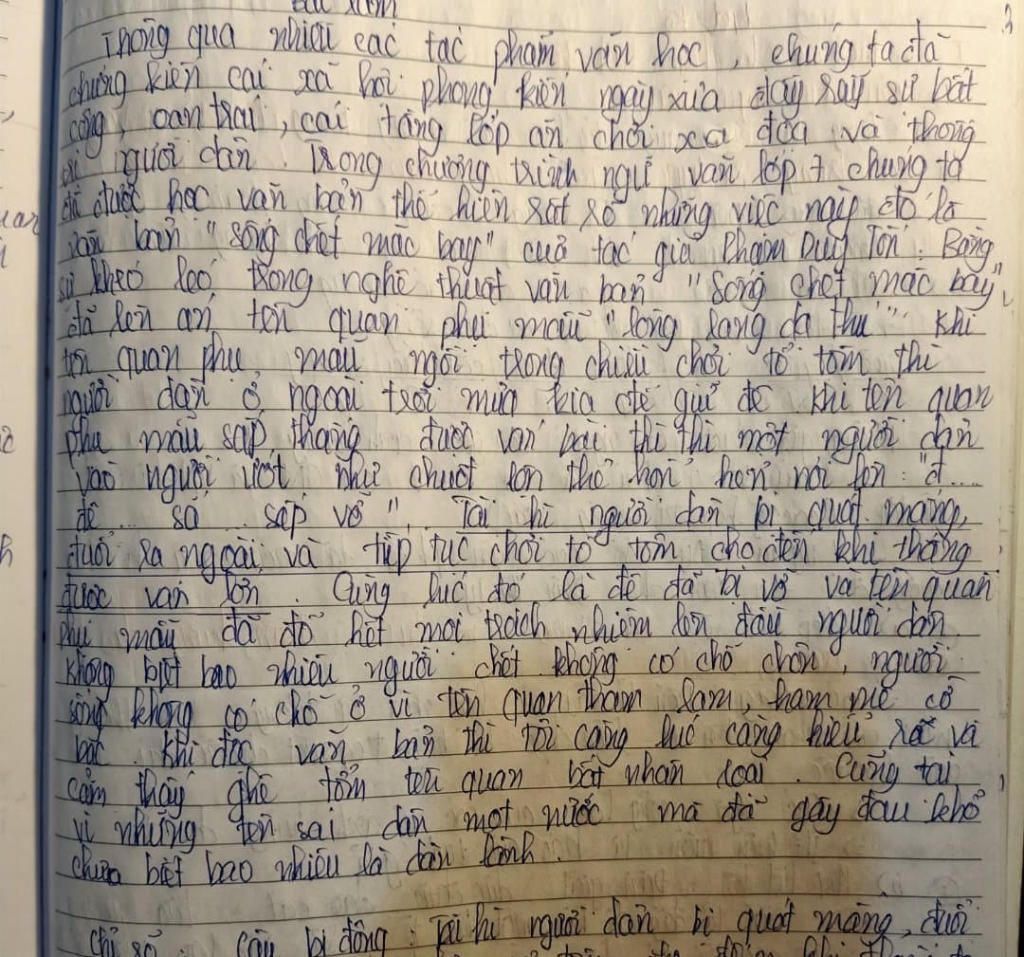 Bài làm
Thông qua nhiều các tác phẩm văn học, chúng ta đã
chứng kiến cái xã hội phong kiến ngày xưa đầy rẫy sự bất
công, oan trái, cái tầng lớp ăn chơi xa đọa và thống
người dân. Trong chương trình ngữ văn lớp 7 chúng ta
đã được học văn bản thể hiện rất rõ những việc này đó là
văn bản "sống chết mặc bay" của tác giả Phạm Duy Tốn. Bằng
sự khéo léo trong nghệ thuật văn bản "Sống chết mặc bay"
đã lên án tên quan phụ mẫu "lòng lang dạ thú". Khi
tên quan phụ mẫu ngồi trong chiếu chơi tổ tôm thì
người dân ở ngoài trời mưa kia để giữ đê. Khi tên quan
phụ mẫu sắp thắng được ván bài thì thì một người dân
vào người ướt như chuột lột thở hổn hển nói lớn: "đ...
đê... sắ... sắp vỡ". Tài hì người dân bị quát mắng,
đuổi ra ngoài và tiếp tục chơi tổ tôm cho đến khi thắng
được ván lớn. Cũng lúc đó là đê đã bị vỡ và tên quan
phụ mẫu đã đổ hết mọi trách nhiệm lên đầu người dân.
Không biết bao nhiêu người chết không có chỗ chôn, người
sống không có chỗ ở vì tên quan tham lam, ham mê cờ
bạc. Khi đọc văn bản thì tôi càng lúc càng hiểu rõ và
cảm thấy ghê tởm tên quan bất nhân loại. Cũng tại
vì những tên sai dân một nước mà đã gây đau khổ
chưa biết bao nhiêu là dân lành.
Chỉ rõ câu bị động: Tài hì người dân bị quát mắng, đuổi